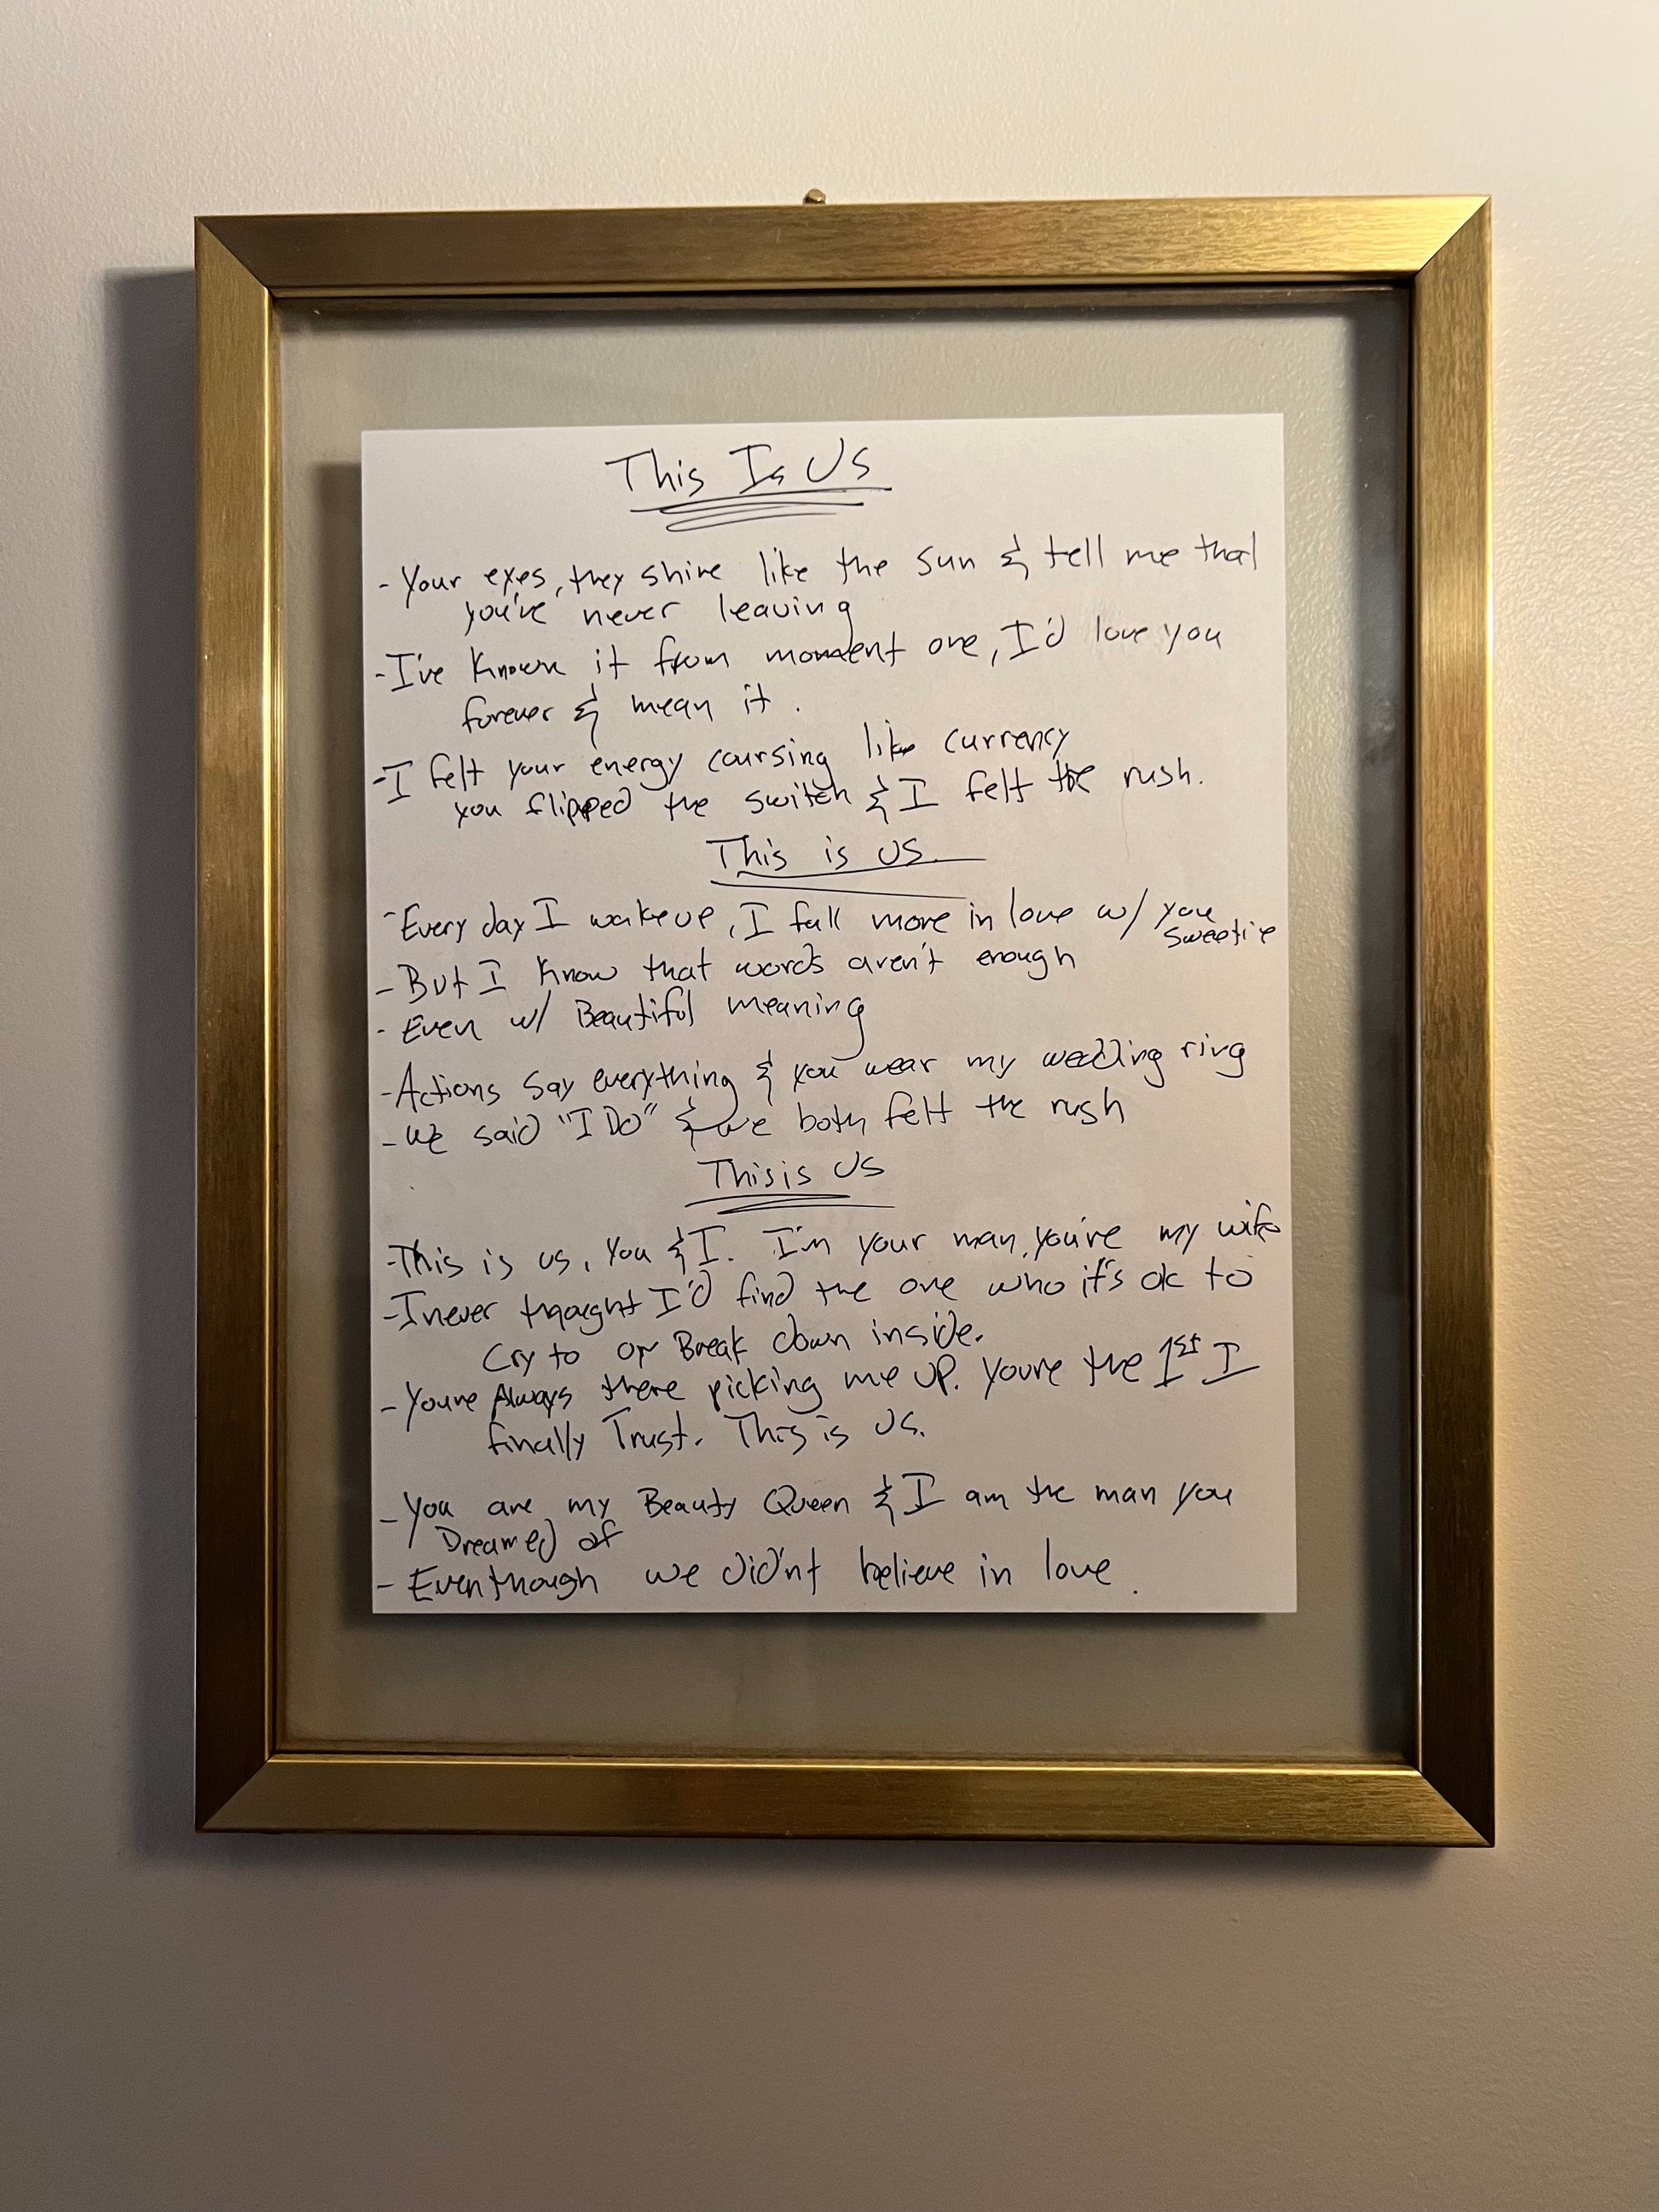 This Is Us
- Your eyes, they shine like the sun & tell me that
you've never leaving
- I've known it from moment one, I'd love you
forever & mean it.
- I felt your energy coursing like currency
you flipped the switch & I felt the rush.
This is US.
- Every day I wake up, I fall more in love w/ you
sweetie
- But I know that words aren't enough
- Even w/ Beautiful meaning
- Actions say everything & you wear my wedding ring
- we said "I DO" & we both felt the rush
This is US
- This is us, you & I. I'm your man, you're my wife
- I never thought I'd find the one who it's ok to
Cry to or Break down inside.
- You're Always there picking me up. you're the 1st I
finally Trust. This is US.
- You are my Beauty Queen & I am the man you
Dreamed of
- Even though we didn't believe in love.